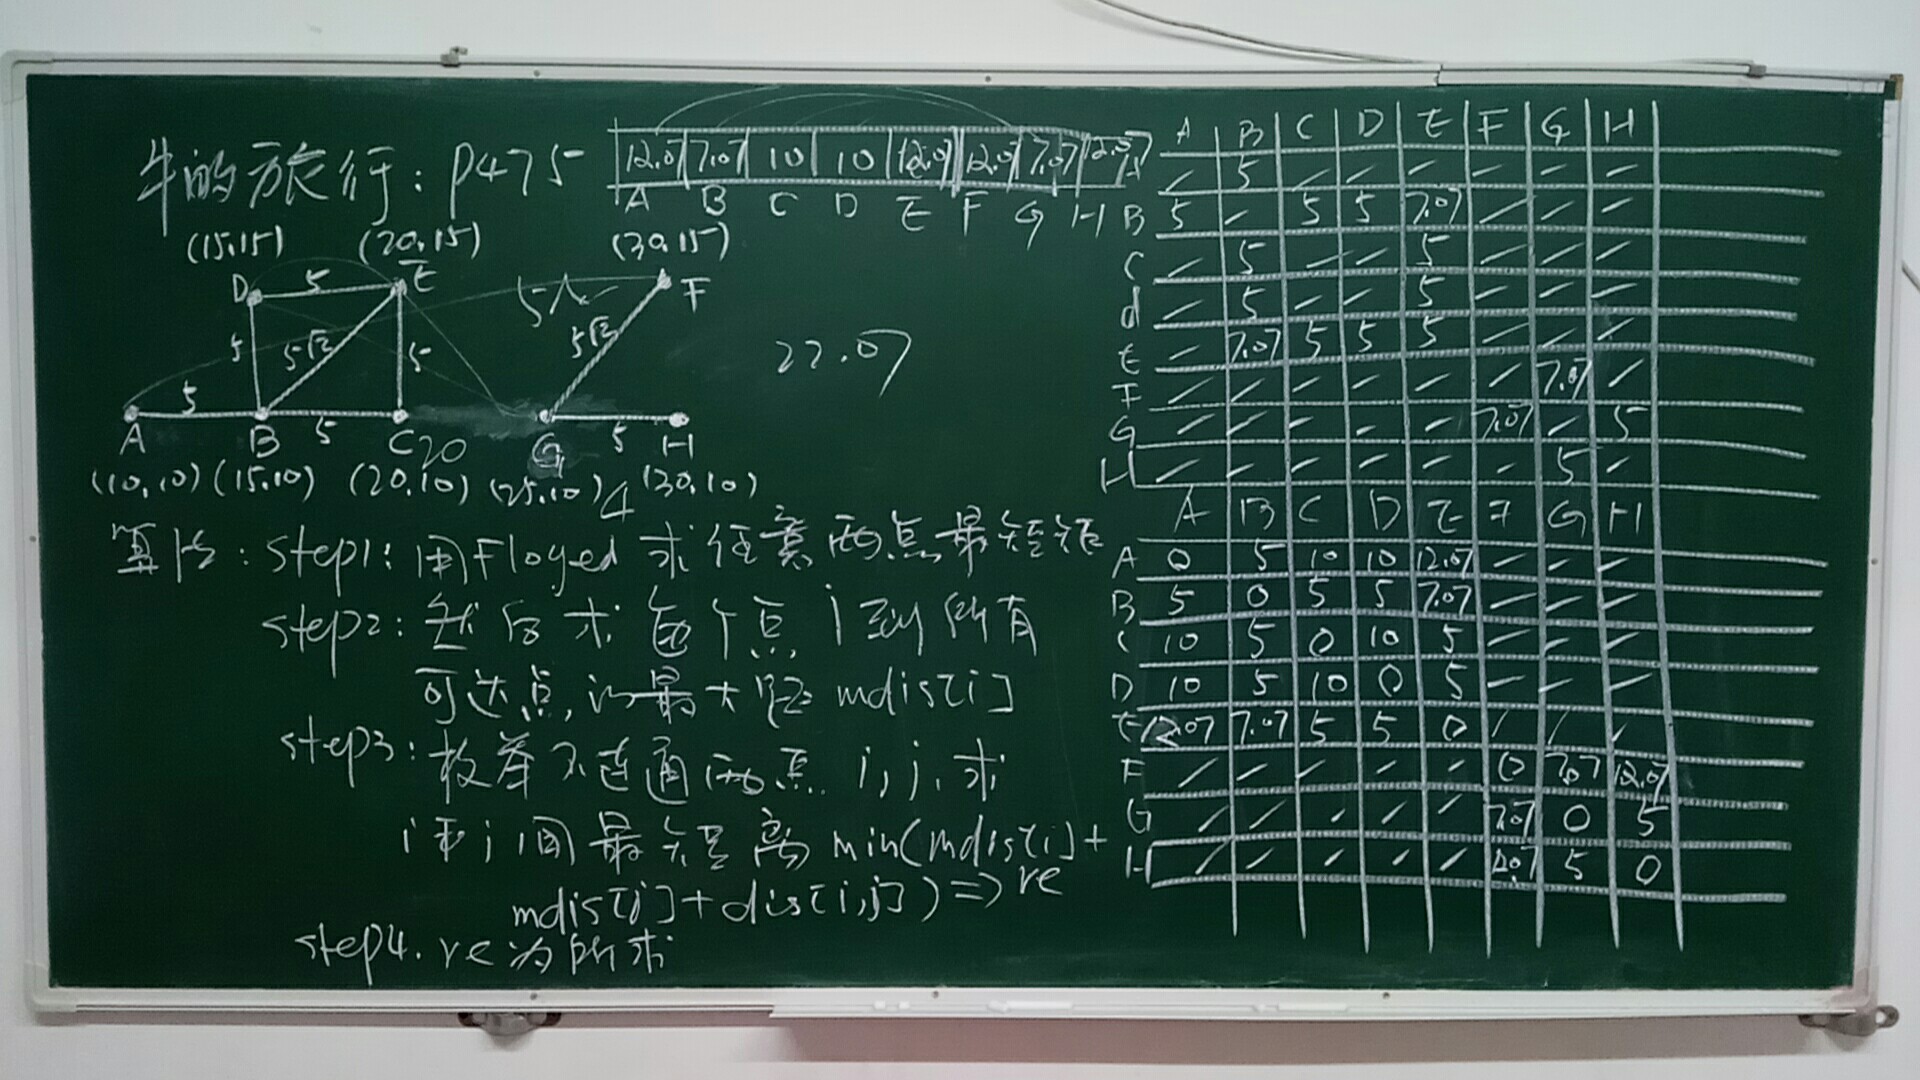 牛的旅行: P475
12.07 7.07 10 10 12.07 12.07 7.07 12.07
A B C D E F G H
(15,15) (20,15) (30,15)
D 5 E F
5 5√2 5 5√2
5 5 5
A B C 20 G H
(10,10) (15,10) (20,10) (25,10) (30,10)
4
22.07
算法: step1: 用Floyed 求任意两点最短距
step2: 然后求每个点 i 到所有
可达点,的最大距 mdis[i]
step3: 枚举不连通两点 i, j, 求
i 和 j 间最短距离 min(mdis[i]+
mdis[j]+dis[i,j]) => re
step4. re为所求
A B C D E F G H
A / 5 / / / / / /
B 5 / 5 5 7.07 / / /
C / 5 / / 5 / / /
d / 5 / / 5 / / /
E / 7.07 5 5 5 / / /
F / / / / / / 7.07 /
G / / / / / 7.07 / 5
H / / / / / / 5 /
A B C D E F G H
A 0 5 10 10 12.07 / / /
B 5 0 5 5 7.07 / / /
C 10 5 0 10 5 / / /
D 10 5 10 0 5 / / /
E 12.07 7.07 5 5 0 / / /
F / / / / / 0 7.07 12.07
G / / / / / 7.07 0 5
H / / / / / 12.07 5 0